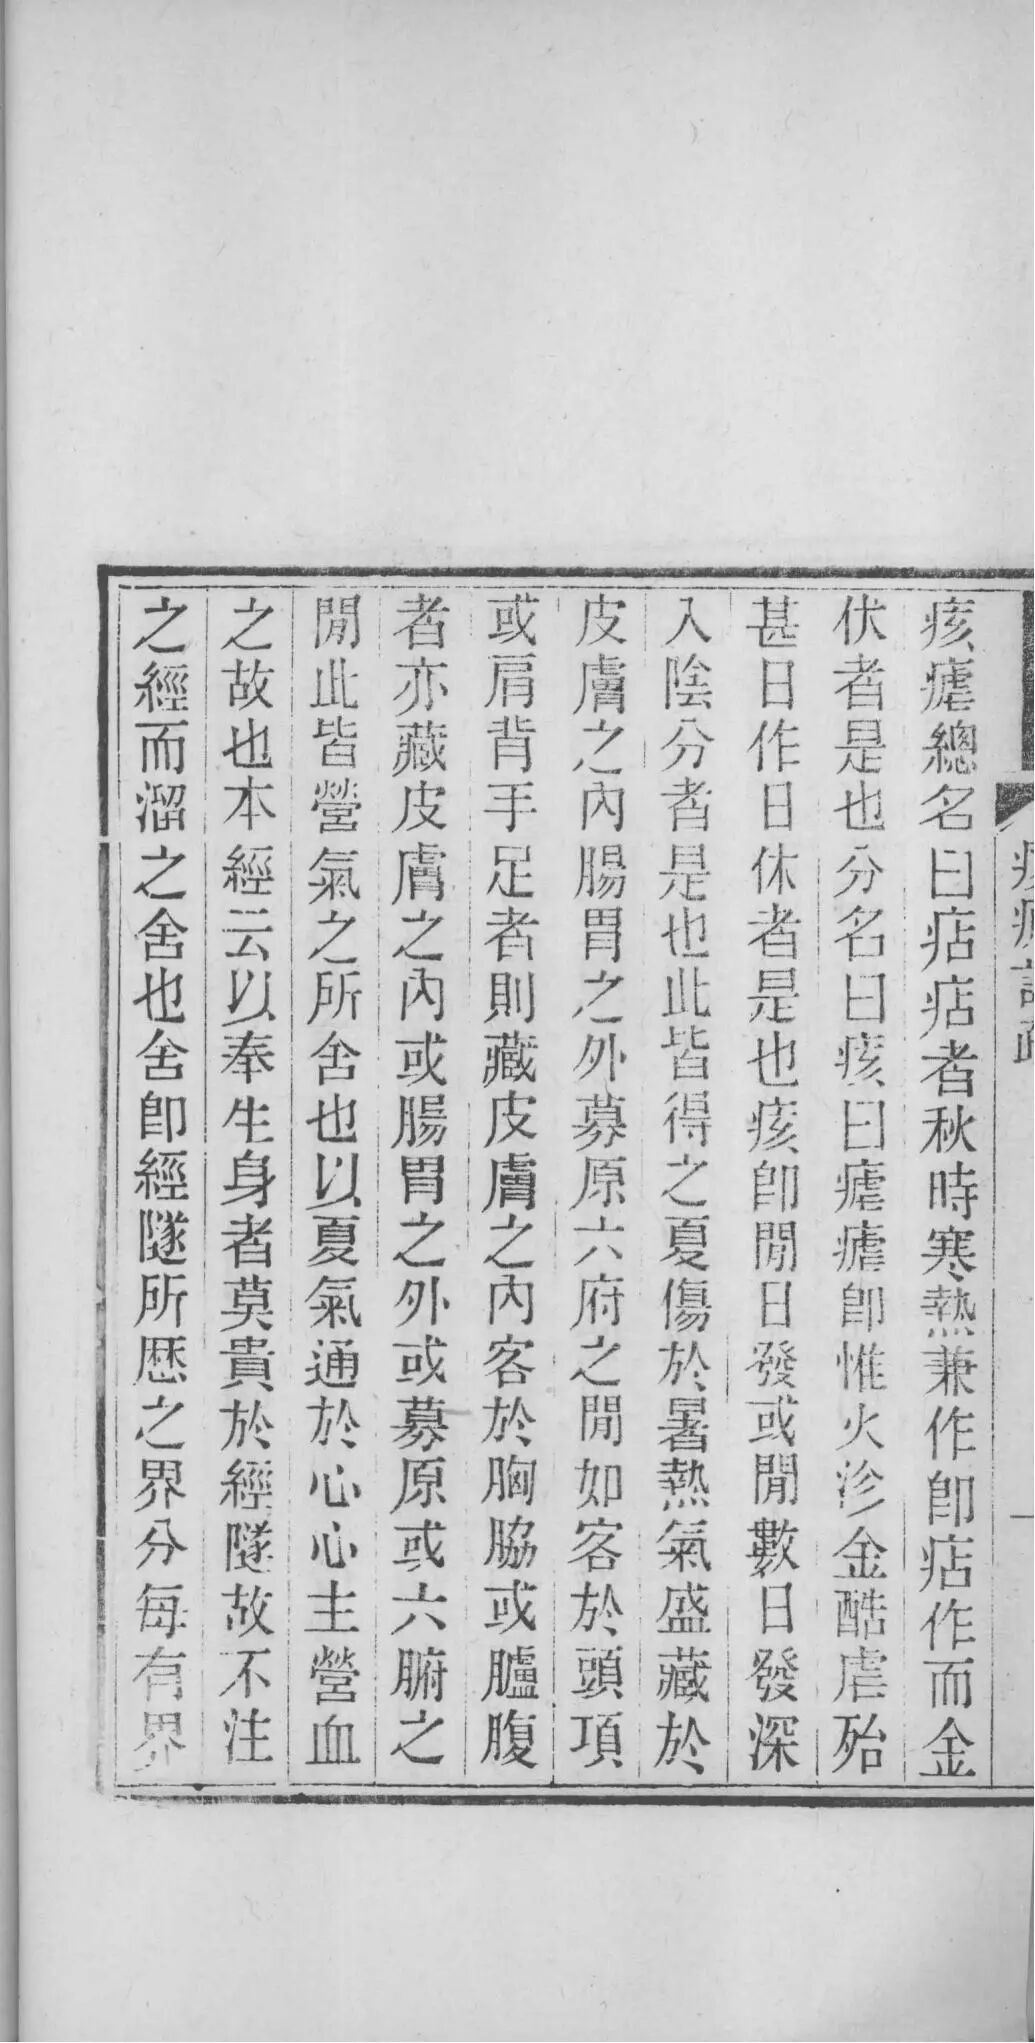 痎瘧總名曰痁痁者秋時寒熱兼作卽痁作而金
伏者是也分名曰痎曰瘧瘧卽惟火沴金酷虐殆
甚日作日休者是也痎卽閒日發或閒數日發深
入陰分者是也此皆得之夏傷於暑熱氣盛藏於
皮膚之內腸胃之外募原六府之閒如客於頭項
或肩背手足者則藏皮膚之內客於胸脇或臚腹
者亦藏皮膚之內或腸胃之外或募原或六腑之
閒此皆營氣之所舍也以夏氣通於心心主營血
之故也本經云以奉生身者莫貴於經隧故不注
之經而溜之舍也舍卽經隧所歷之界分每有界